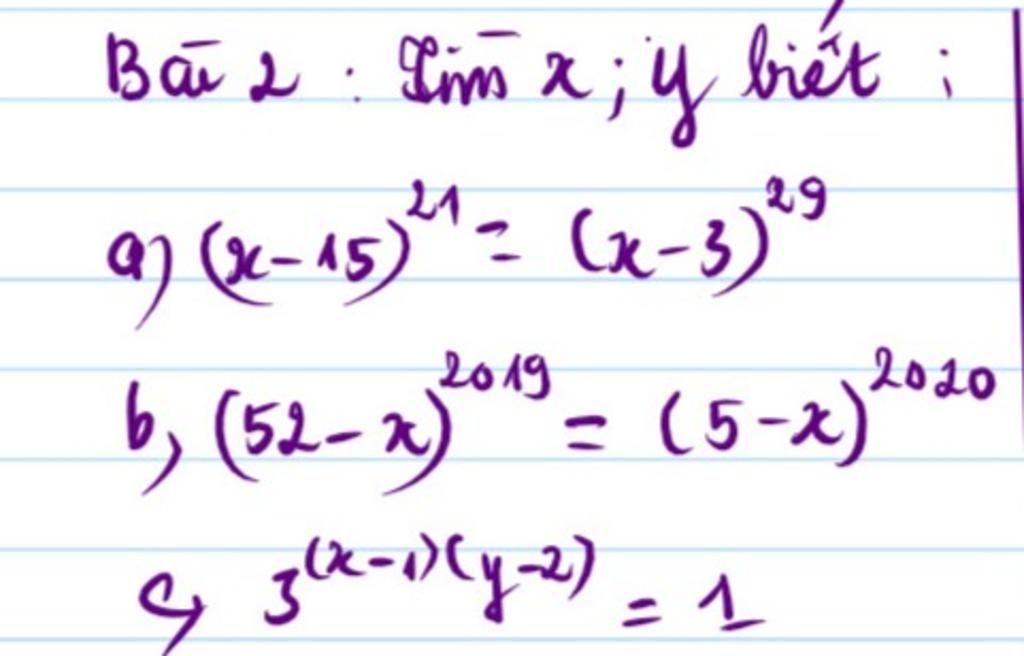 Bài 2 : Tìm x ; y biết :
a) (x-15)^21 = (x-3)^29
b, (52-x)^2019 = (5-x)^2020
c, 3^(x-1)(y-2) = 1